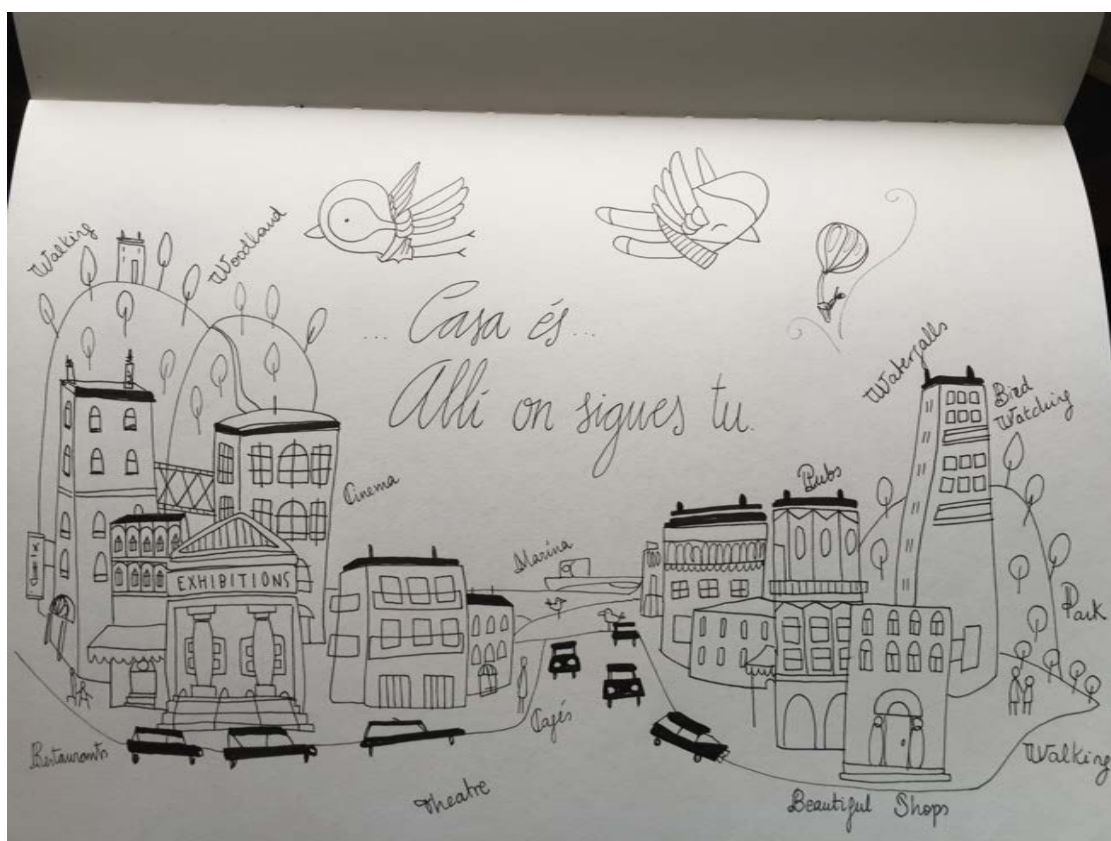 Walking
Woodland
... Casa és...
Allí on sigues tu.
Waterfalls
Bird
Watching
Cinema
Pubs
Marina
EXHIBITIONS
Park
Cafés
Restaurants
Walking
Theatre
Beautiful Shops